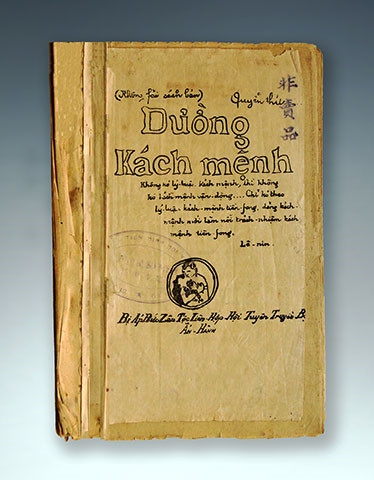 (Không fải sách bán)
Quyển thứ
非賣品
Đường
Kách mệnh
Không có lý luận kách mệnh, thì không
có kách mệnh vận-động.... Chỉ có theo
lý luận kách-mệnh tiền-fong, đảng kách-
mệnh mới làm nổi trách-nhiệm kách
mệnh tiền fong.
Lê-nin.
Bị Áp Bức Zân Tộc Liên Hợp Hội Tuyên Truyền Bộ
Ấn-Hành